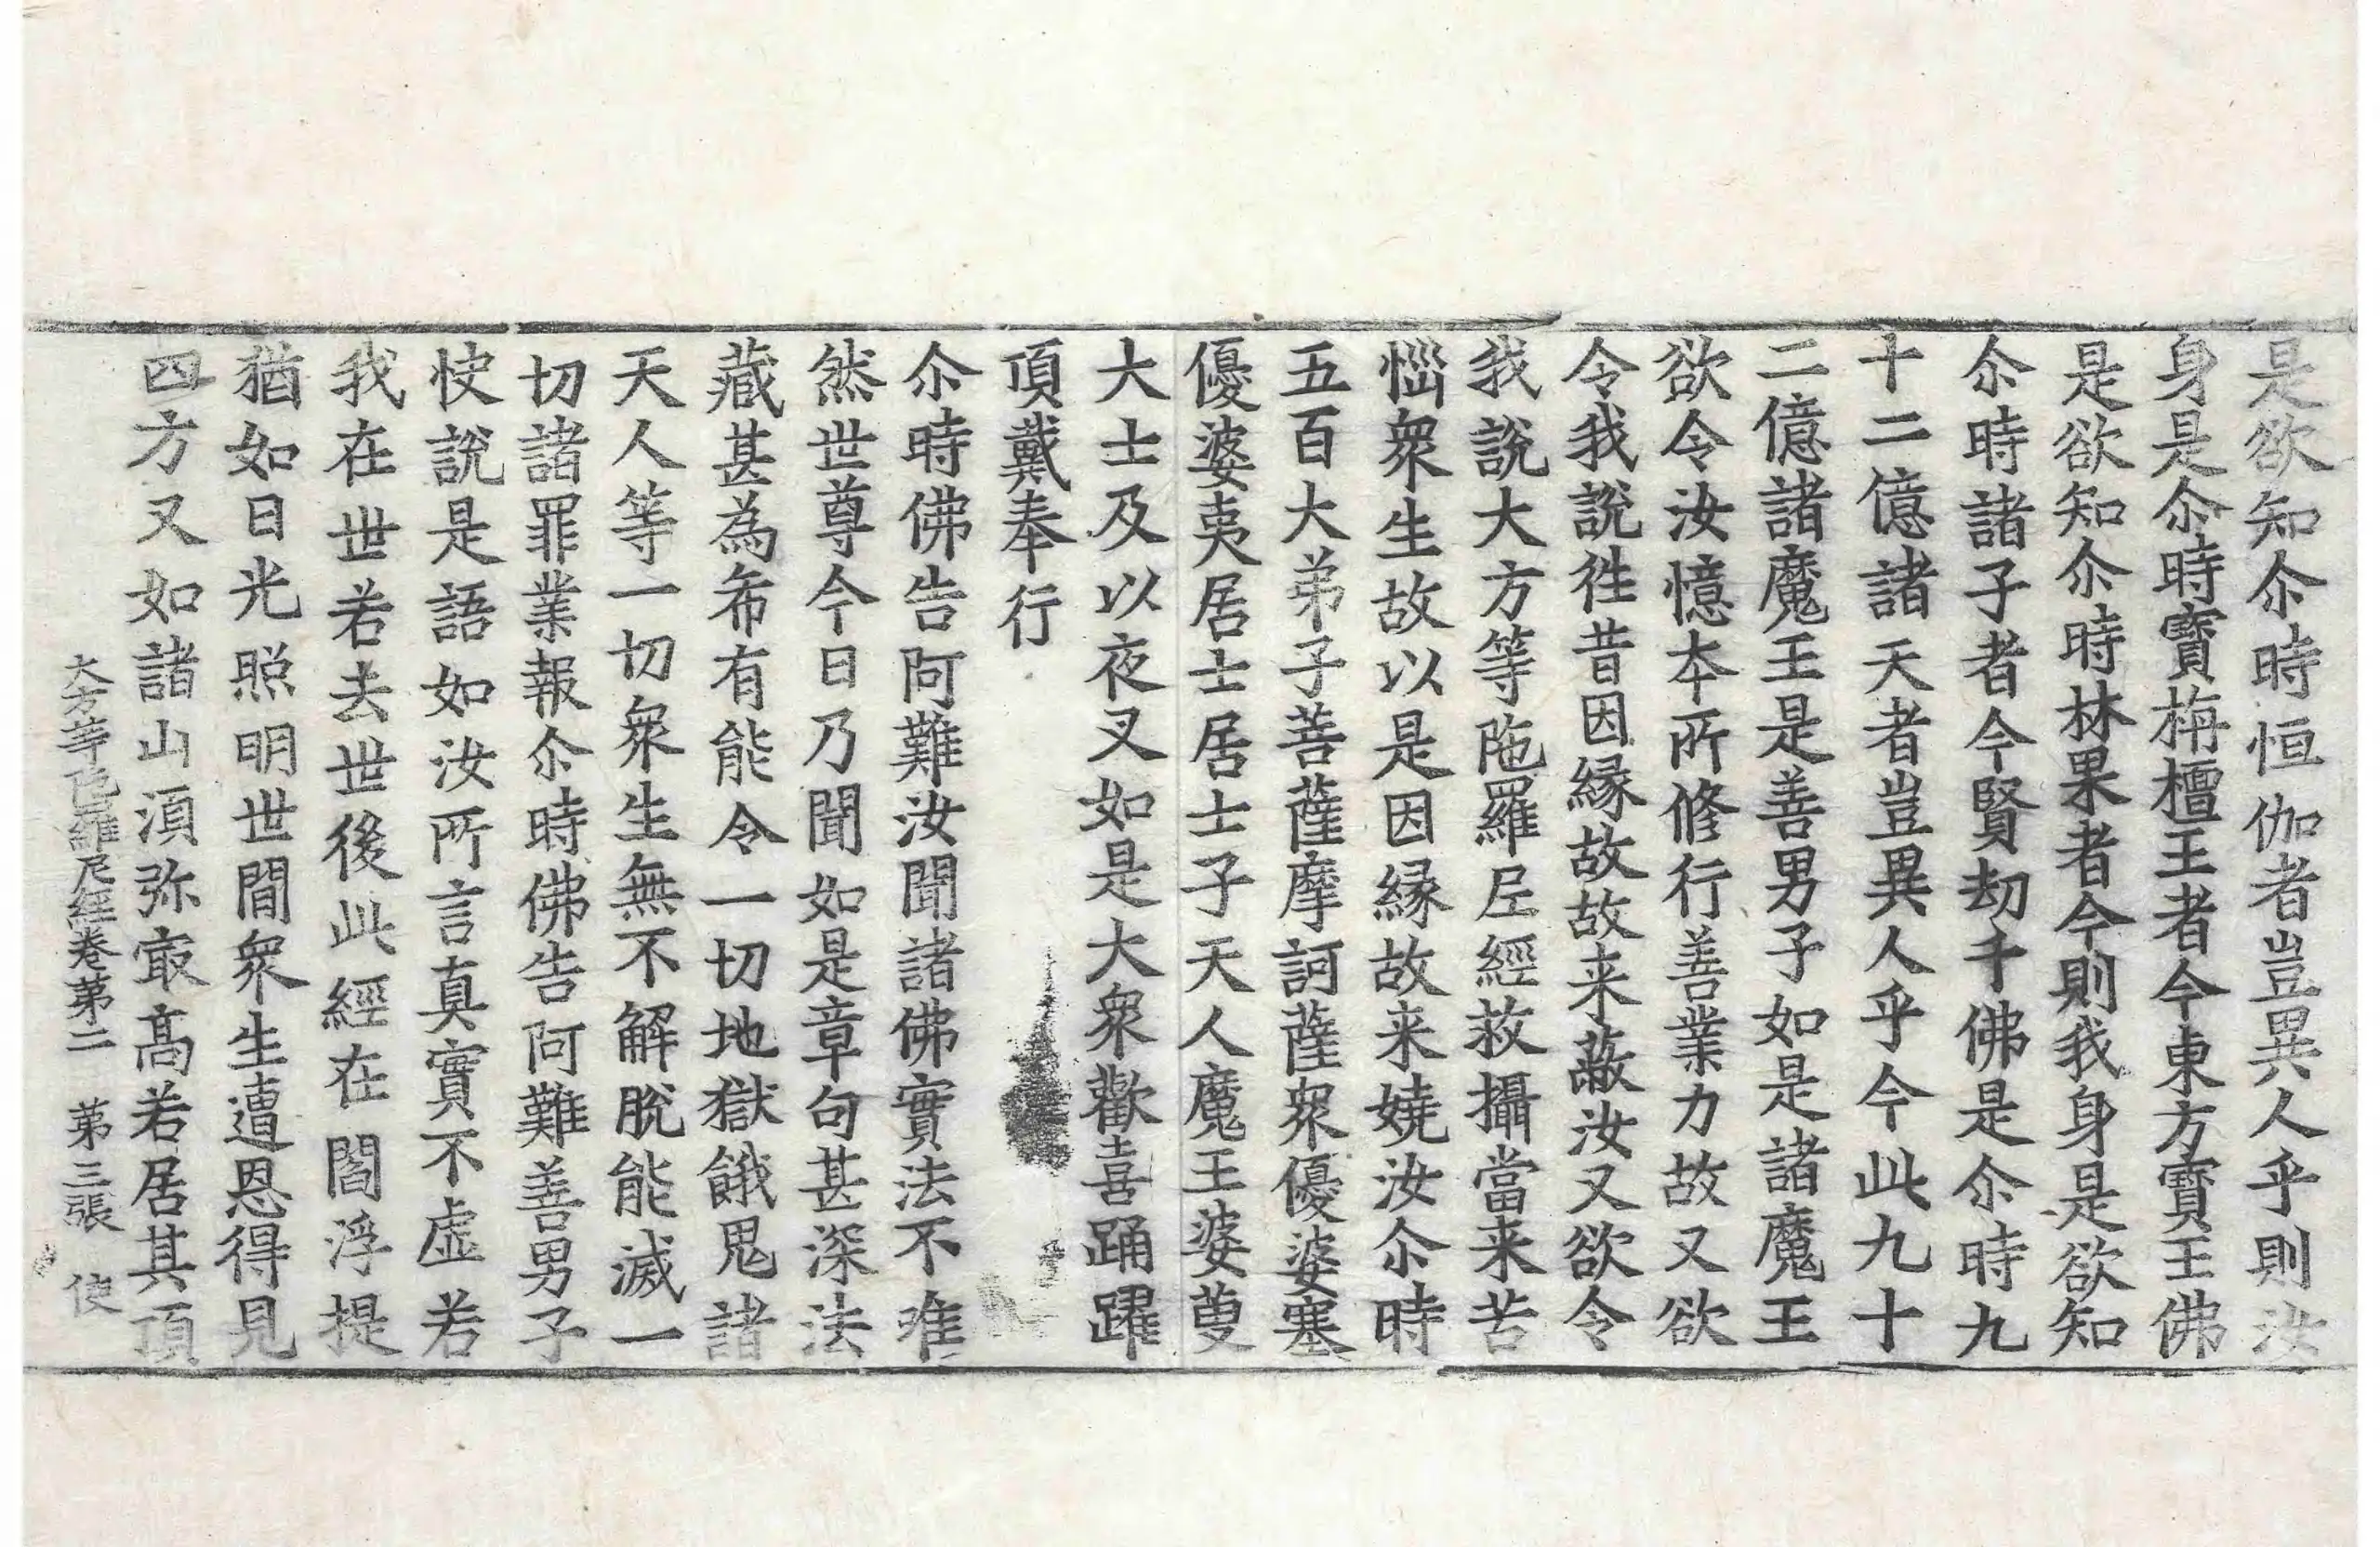 是欲知尒時恒伽者豈異人乎則汝
身是尒時寶栴檀王者今東方寶王佛
是欲知尒時林果者今則我身是欲知
尒時諸子者今賢劫千佛是尒時九
十二億諸天者豈異人乎今此九十
二億諸魔王是善男子如是諸魔王
欲令汝憶本所修行善業力故又欲
令我說徃昔因縁故故来蔽汝又欲令
我說大方等陁羅尼經救攝當来苦
惱衆生故以是因縁故来嬈汝尒時
五百大弟子菩薩摩訶薩衆優婆塞
優婆夷居士居士子天人魔王婆藪
大士及以夜叉如是大衆歡喜踊躍
頂戴奉行
尒時佛告阿難汝聞諸佛實法不唯
然世尊今日乃聞如是章句甚深法
藏甚為希有能令一切地獄餓鬼諸
天人等一切衆生無不解脫能滅一
切諸罪業報尒時佛告阿難善男子
快說是語如汝所言真實不虛若
我在世若去世後此經在閻浮提
猶如日光照明世間衆生遭恩得見
四方又如諸山湏弥㝡髙若居其頂
大方等陁羅尼經卷第二　第三張　使